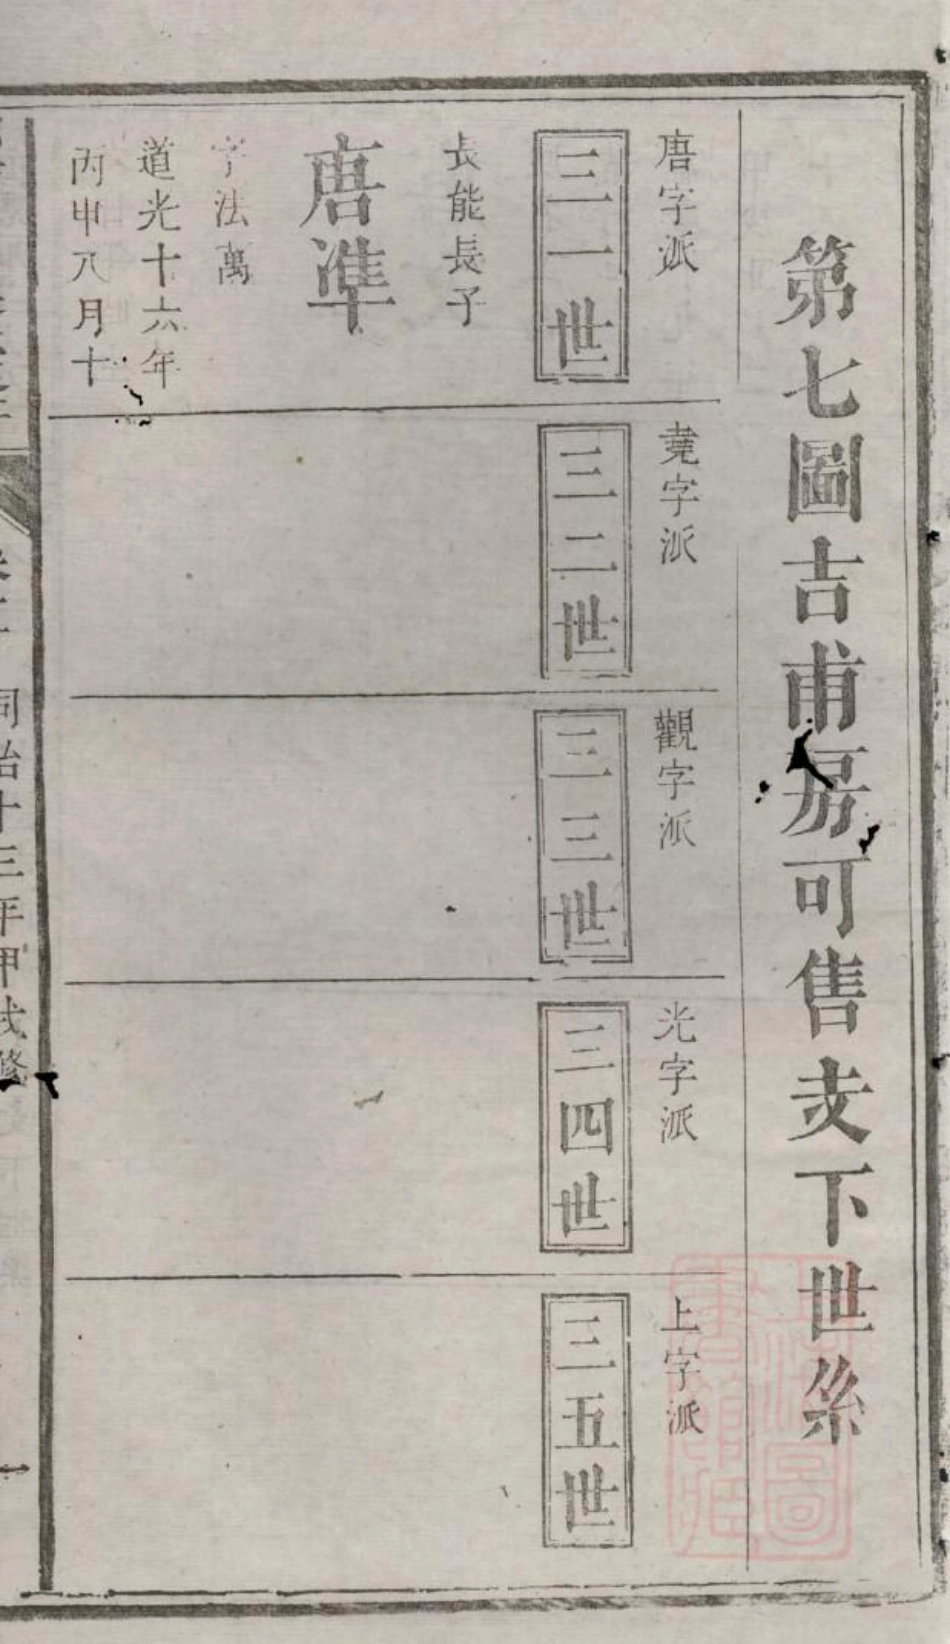 第七圖吉甫房可售支下世系
唐字派
三一世
長能長子
唐準
字法萬
道光十六年
丙申八月十
堯字派
三二世
觀字派
三三世
光字派
三四世
上字派
三五世
同治十三年甲戌修